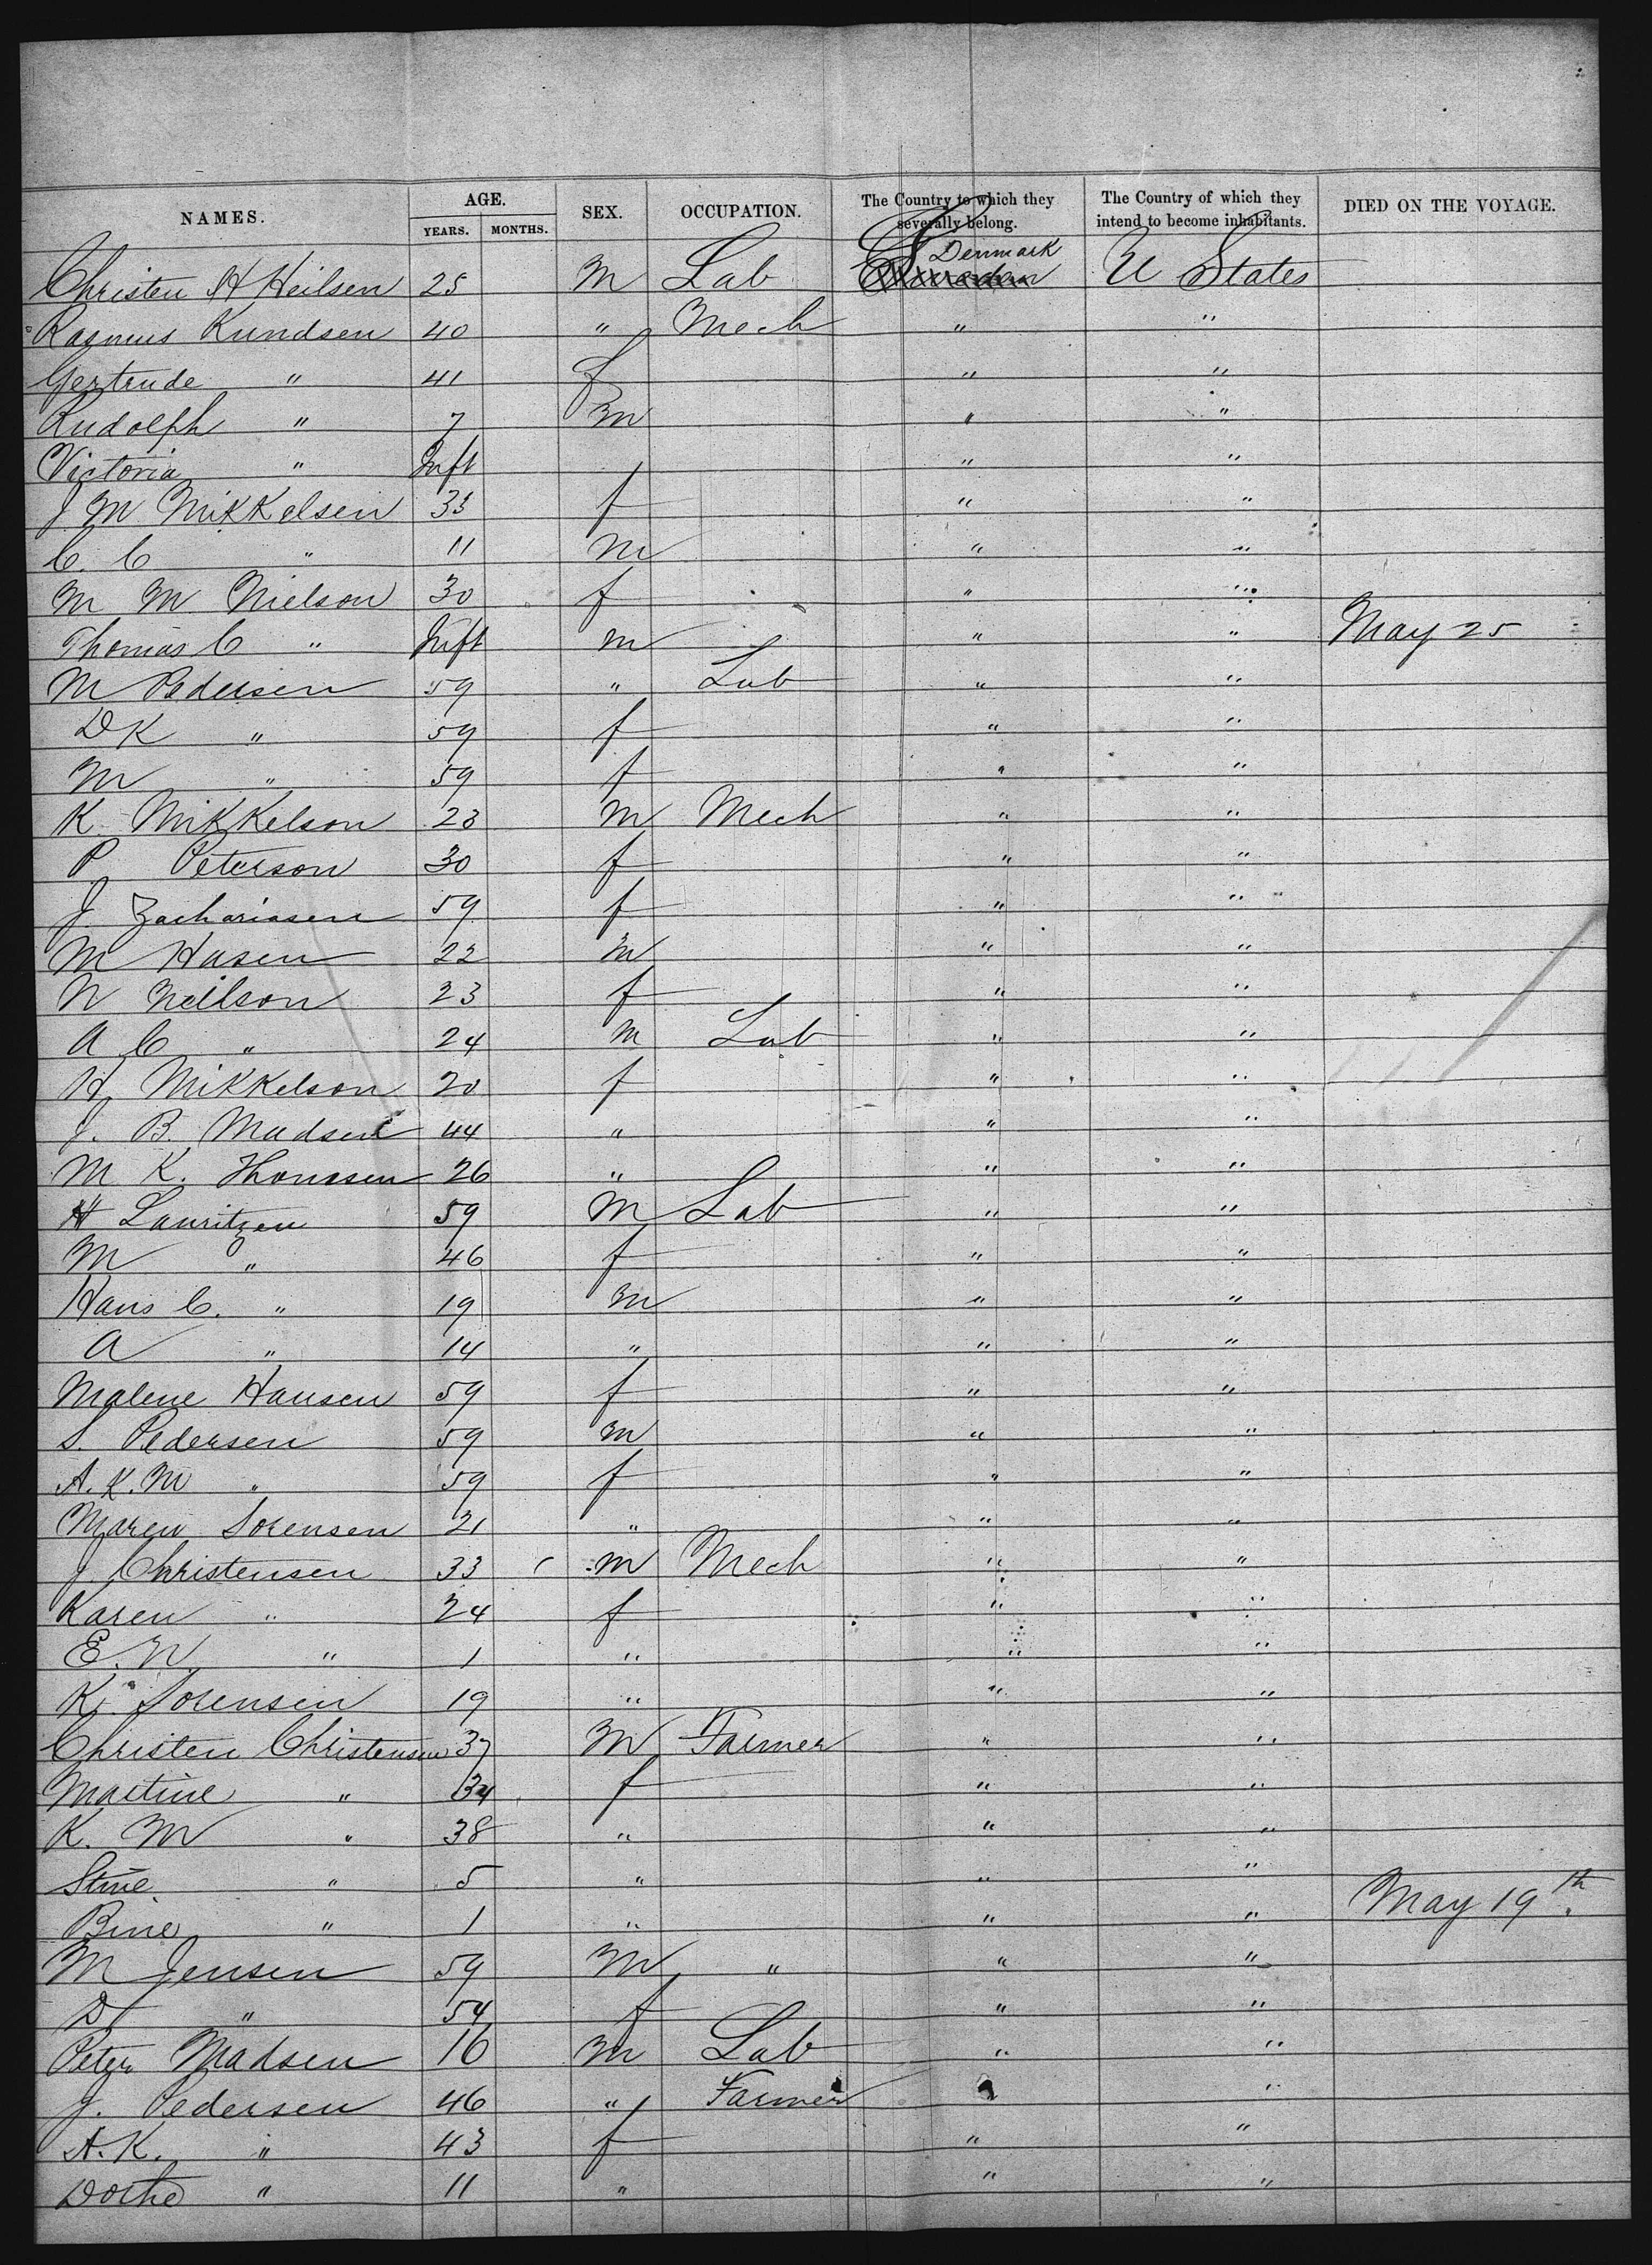 NAMES. AGE. SEX. OCCUPATION. The Country to which they severally belong. The Country of which they intend to become inhabitants. DIED ON THE VOYAGE.
YEARS. MONTHS.
Denmark
Christen H Heilsen 25 M Lab Sweeden U States
Rasmus Kundsen 40 " Mech " "
Gertrude " 41 f " "
Rudolph " 7 m " "
Victoria " Inft " "
J M Mikkelsen 33 f " "
C. C " 11 m " "
M M Nielson 30 f " "
Thomas C " Inft m " " May 25
M Pedersen 59 " Lab " "
D K " 59 f " "
M " 59 f " "
K Mikkelson 23 m Mech " "
P Peterson 30 f " "
J. Zachariasen 59 f " "
M Hasen 22 m " "
N Neilson 23 f " "
A C " 24 m Lab " "
H Mikkelson 20 f " "
J. B. Madsen 44 " " "
M K. Thomsen 26 " " "
H Lauritzen 59 m Lab " "
M " 46 f " "
Hans C. " 19 m " "
A " 14 " " "
Malene Hansen 59 f " "
S. Pedersen 59 m " "
A. K. M " 59 f " "
Maren Sorensen 21 " " "
J Christensen 33 m Mech " "
Karen " 24 f " "
E. N. " 1 " " "
K. Sorensen 19 " " "
Christen Christensen 37 m Farmer " "
Martine " 34 f " "
K. M " 38 " " "
Stine " 5 " " "
Bine " 1 " " " May 19th.
M Jensen 59 m " " "
D " 54 f " "
Peter Madsen 16 m Lab " "
J. Pedersen 46 " Farmer " "
A. K. " 43 f " "
Dorthe " 11 " " "